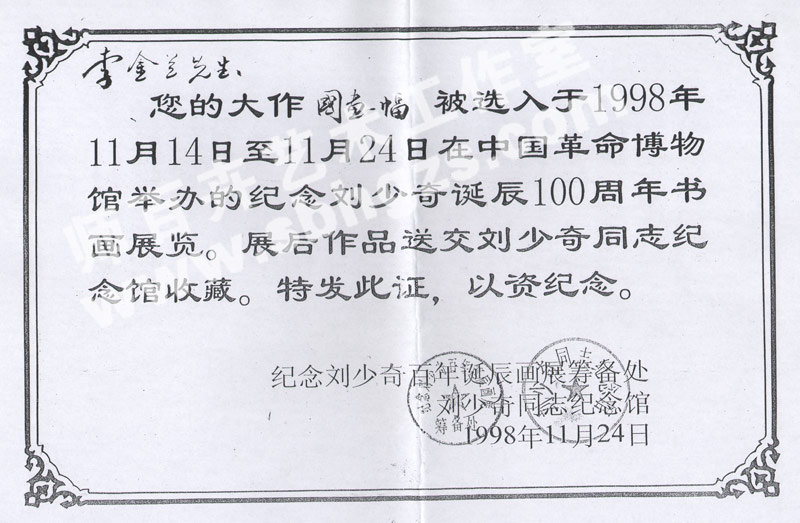 李金兰先生
您的大作 國画一幅 被选入于1998年
11月14日至11月24日在中国革命博物
馆举办的纪念刘少奇诞辰100周年书
画展览。展后作品送交刘少奇同志纪
念馆收藏。特发此证，以资纪念。
纪念刘少奇百年诞辰画展筹备处
刘少奇同志纪念馆
1998年11月24日
筹备处